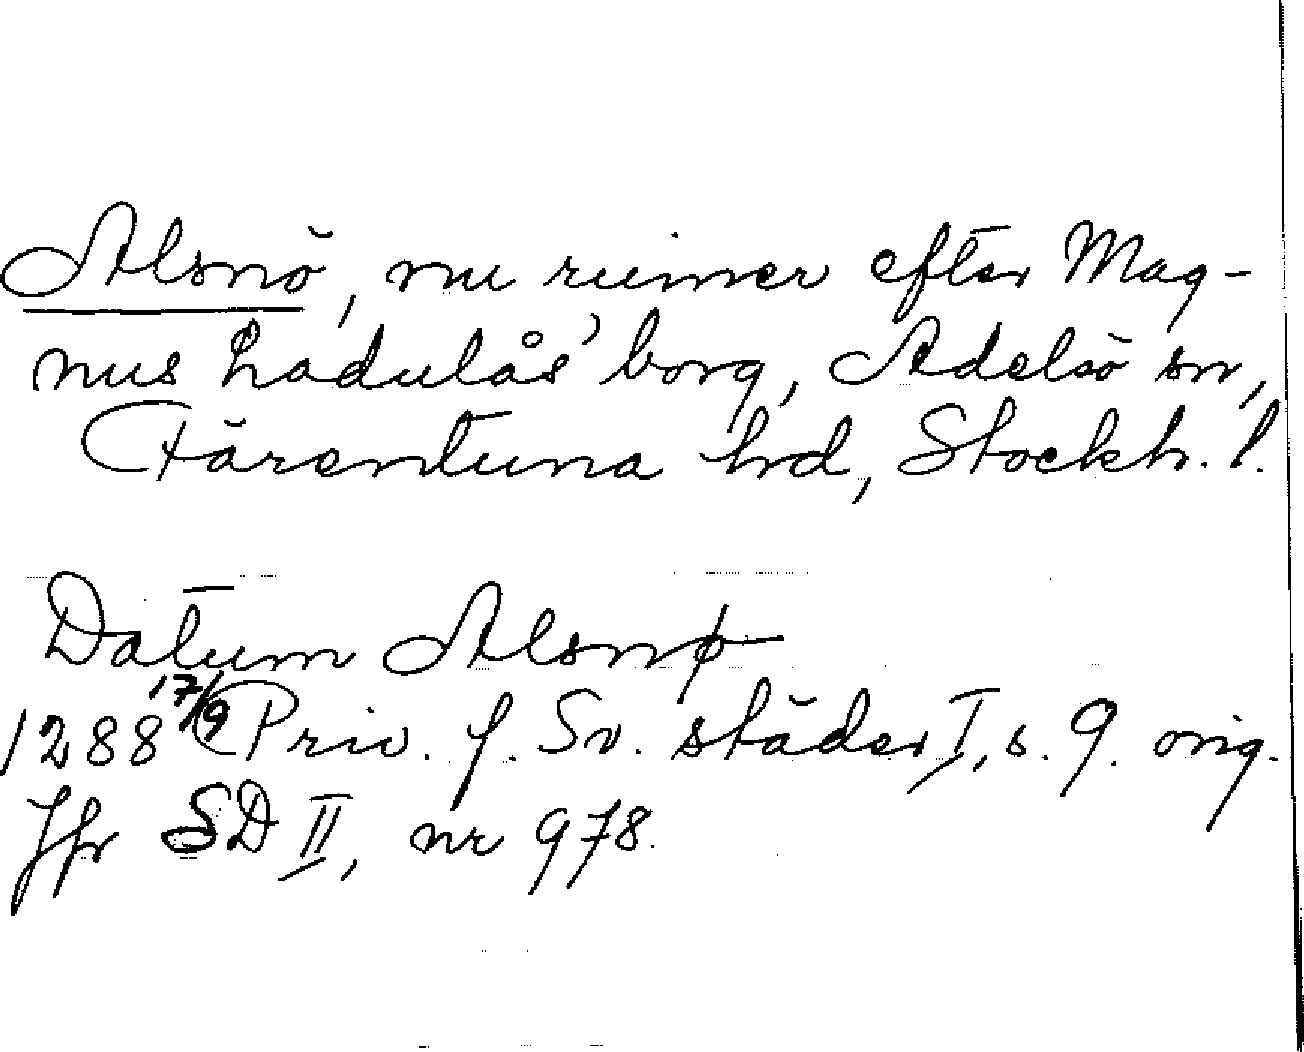 Alsnö, nu ruiner efter Mag-
nus Ladulås' borg, Adelsö sn,
Färentuna hd, Stockh. l.
Datum Alsnø
1288 17/9 Priv. f. Sv. städer I, s. 9. orig.
Jfr SD II, nr 978.